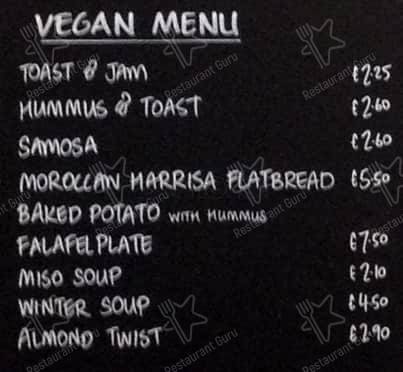 VEGAN MENU
TOAST & JAM £2.25
HUMMUS & TOAST £2.60
SAMOSA £2.60
MOROCCAN HARRISA FLATBREAD £5.50
BAKED POTATO WITH HUMMUS
FALAFEL PLATE £7.50
MISO SOUP £2.10
WINTER SOUP £4.50
ALMOND TWIST £2.90
Restaurant Guru
Restaurant Guru
Restaurant Guru
Restaurant Guru
Restaurant Guru
Restaurant Guru
Restaurant Guru
Restaurant Guru